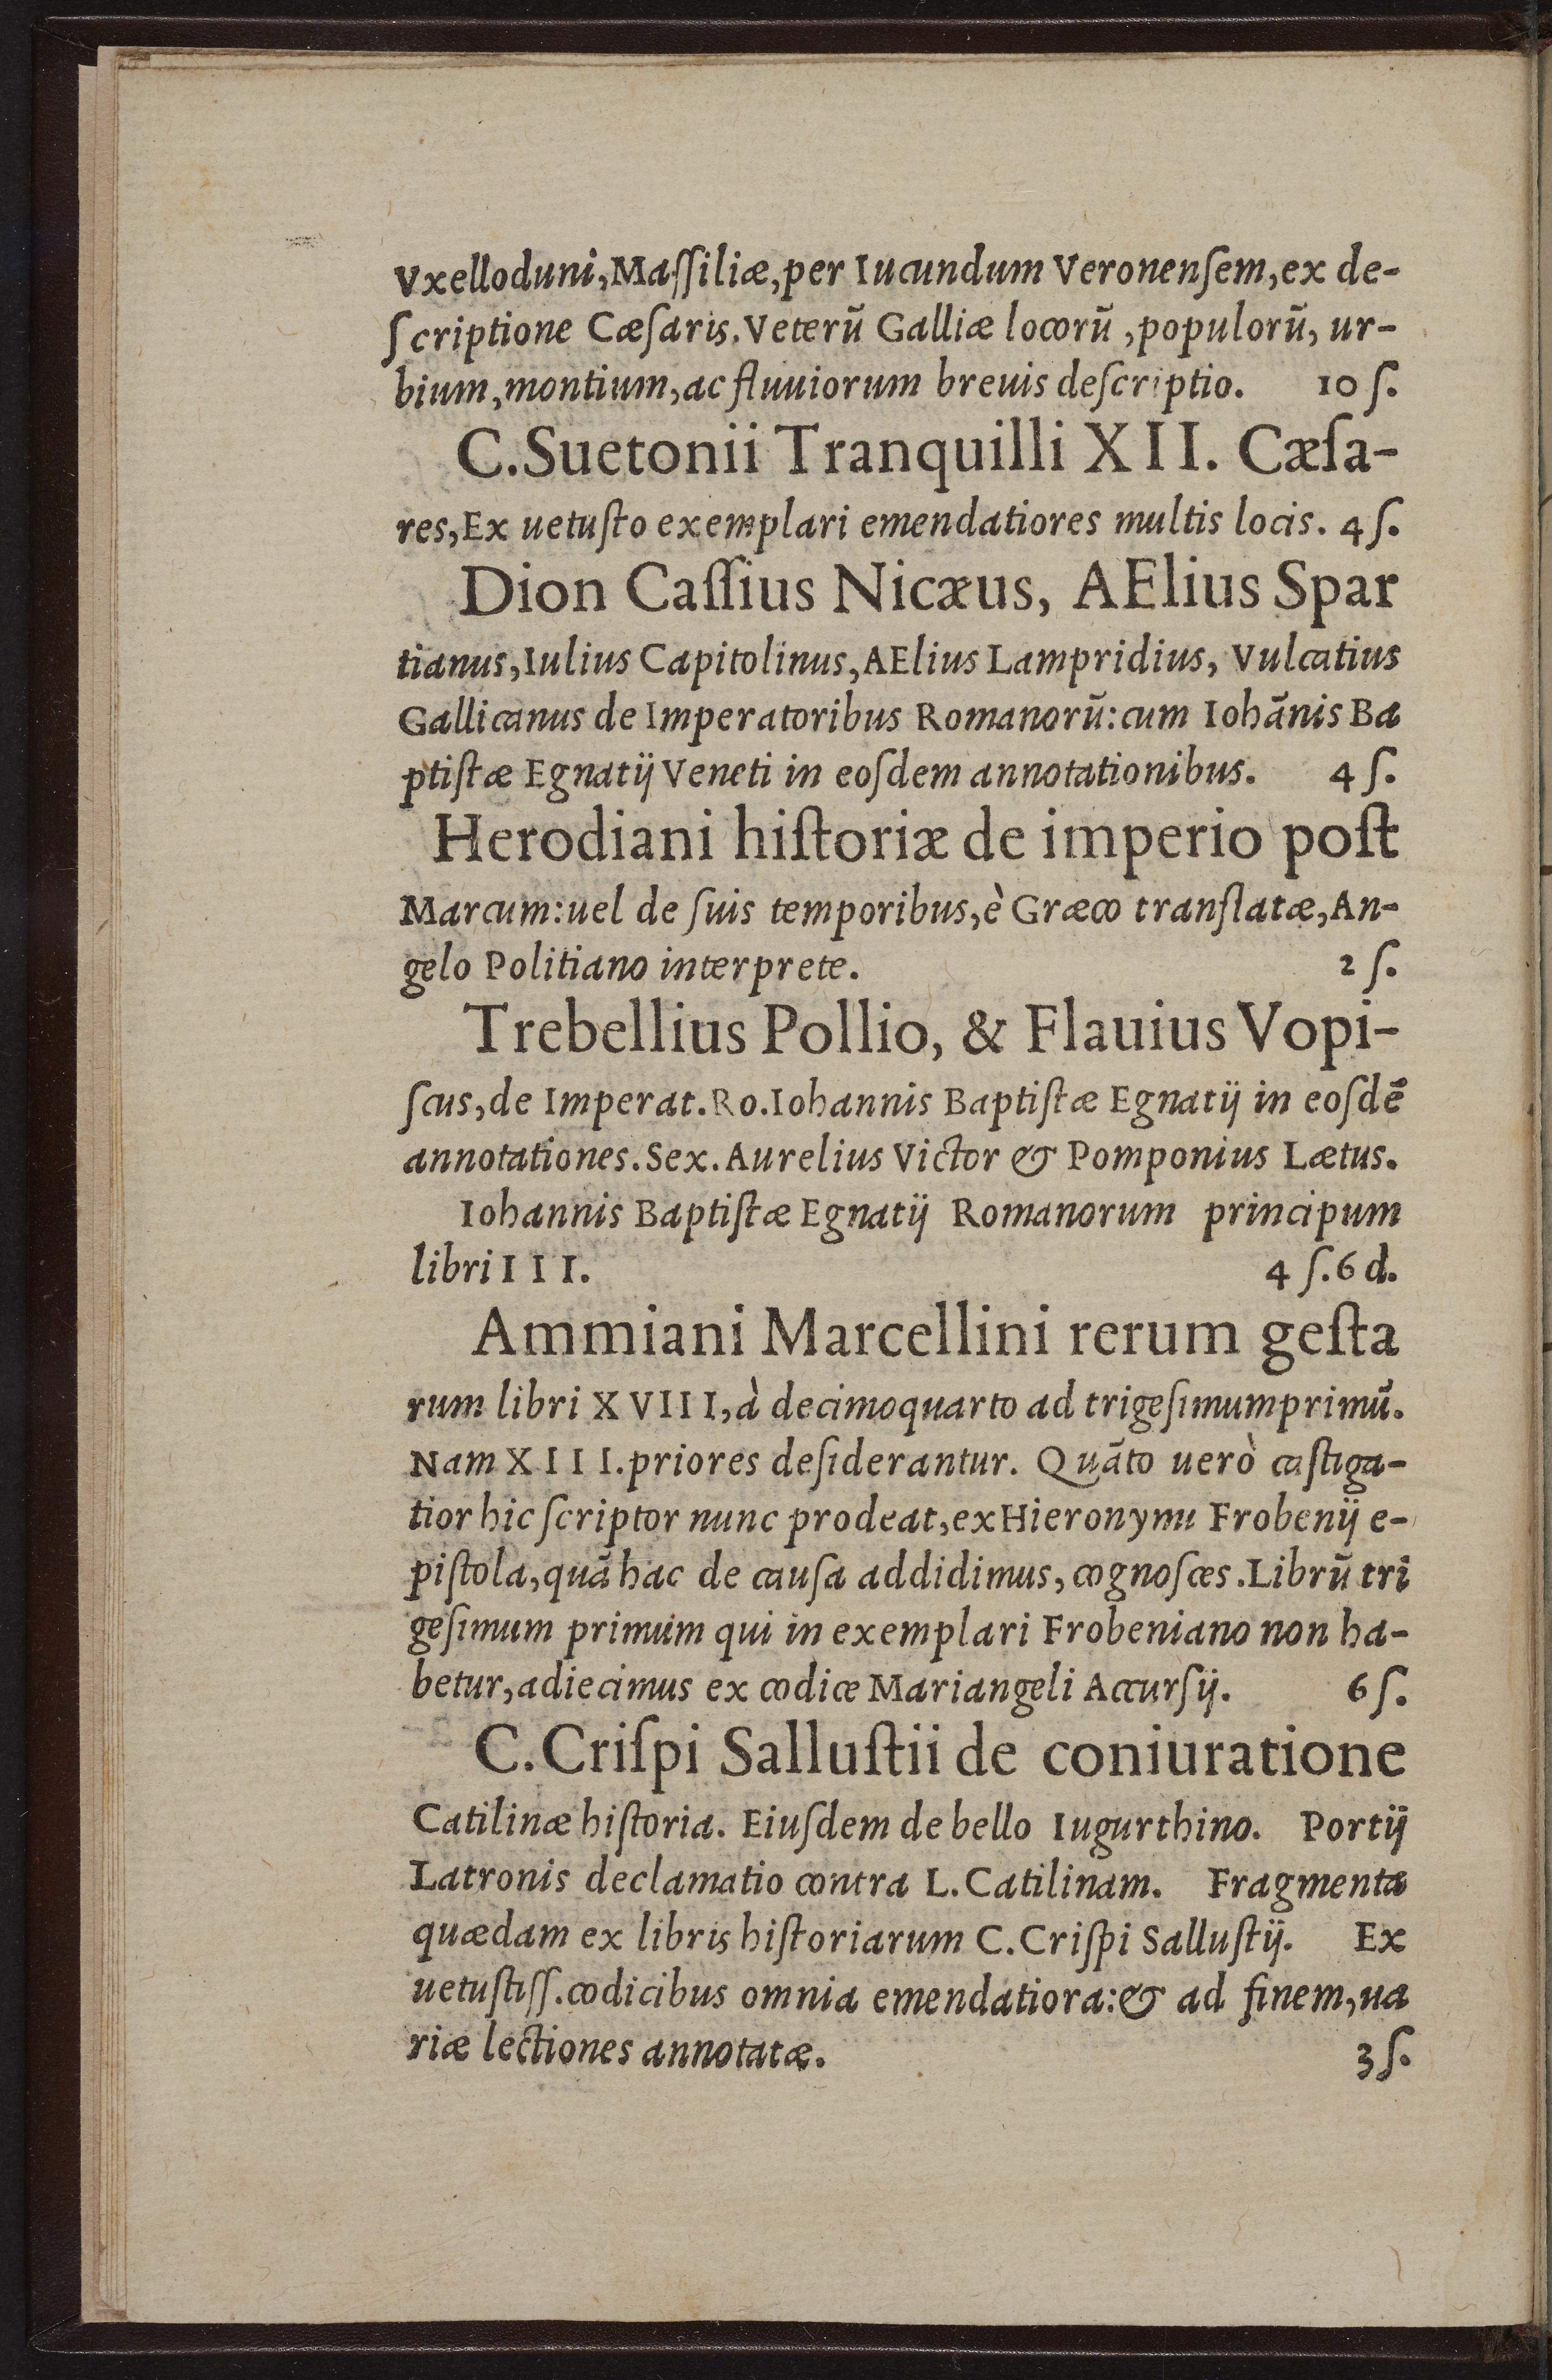 Vxelloduni,Maſſiliæ,per Iucundum Veronenſem,ex de-
ſcriptione Cæſaris.Veterũ Galliæ locorũ ,populorũ, ur-
bium,montium,ac fluuiorum breuis deſcriptio. 10 ſ.
C.Suetonii Tranquilli XII. Cæſa-
res,Ex uetuſto exemplari emendatiores multis locis. 4 ſ.
Dion Caſſius Nicæus, AElius Spar
tianus,Iulius Capitolinus,AElius Lampridius, Vulcatius
Gallicanus de Imperatoribus Romanorũ:cum Iohãnis Ba
ptiſtæ Egnatij Veneti in eoſdem annotationibus. 4 ſ.
Herodiani hiſtoriæ de imperio poſt
Marcum:uel de ſuis temporibus,è Græco tranſlatæ,An-
gelo Politiano interprete. 2 ſ.
Trebellius Pollio, & Flauius Vopi-
ſcus,de Imperat.Ro.Iohannis Baptiſtæ Egnatij in eoſdẽ
annotationes.Sex.Aurelius Victor & Pomponius Lætus.
Iohannis Baptiſtæ Egnatij Romanorum principum
libri III. 4 ſ.6 d.
Ammiani Marcellini rerum geſta
rum libri XVIII,à decimoquarto ad trigeſimumprimũ.
Nam XIII.priores deſiderantur. Quãto uerò caſtiga-
tior hic ſcriptor nunc prodeat,ex Hieronymi Frobenij e-
piſtola,quã hac de cauſa addidimus, cognoſces.Librũ tri
geſimum primum qui in exemplari Frobeniano non ha-
betur,adiecimus ex codice Mariangeli Accurſij. 6 ſ.
C.Criſpi Salluſtii de coniuratione
Catilinæ hiſtoria. Eiuſdem de bello Iugurthino. Portij
Latronis declamatio contra L.Catilinam. Fragmenta
quædam ex libris hiſtoriarum C.Criſpi Salluſtij. Ex
uetuſtiſſ.codicibus omnia emendatiora:& ad finem,ua
riæ lectiones annotatæ. 3 ſ.